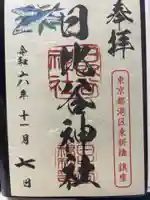 奉拝
東京都港区東新橋鎮座
日比谷神社
令和六年十一月七日